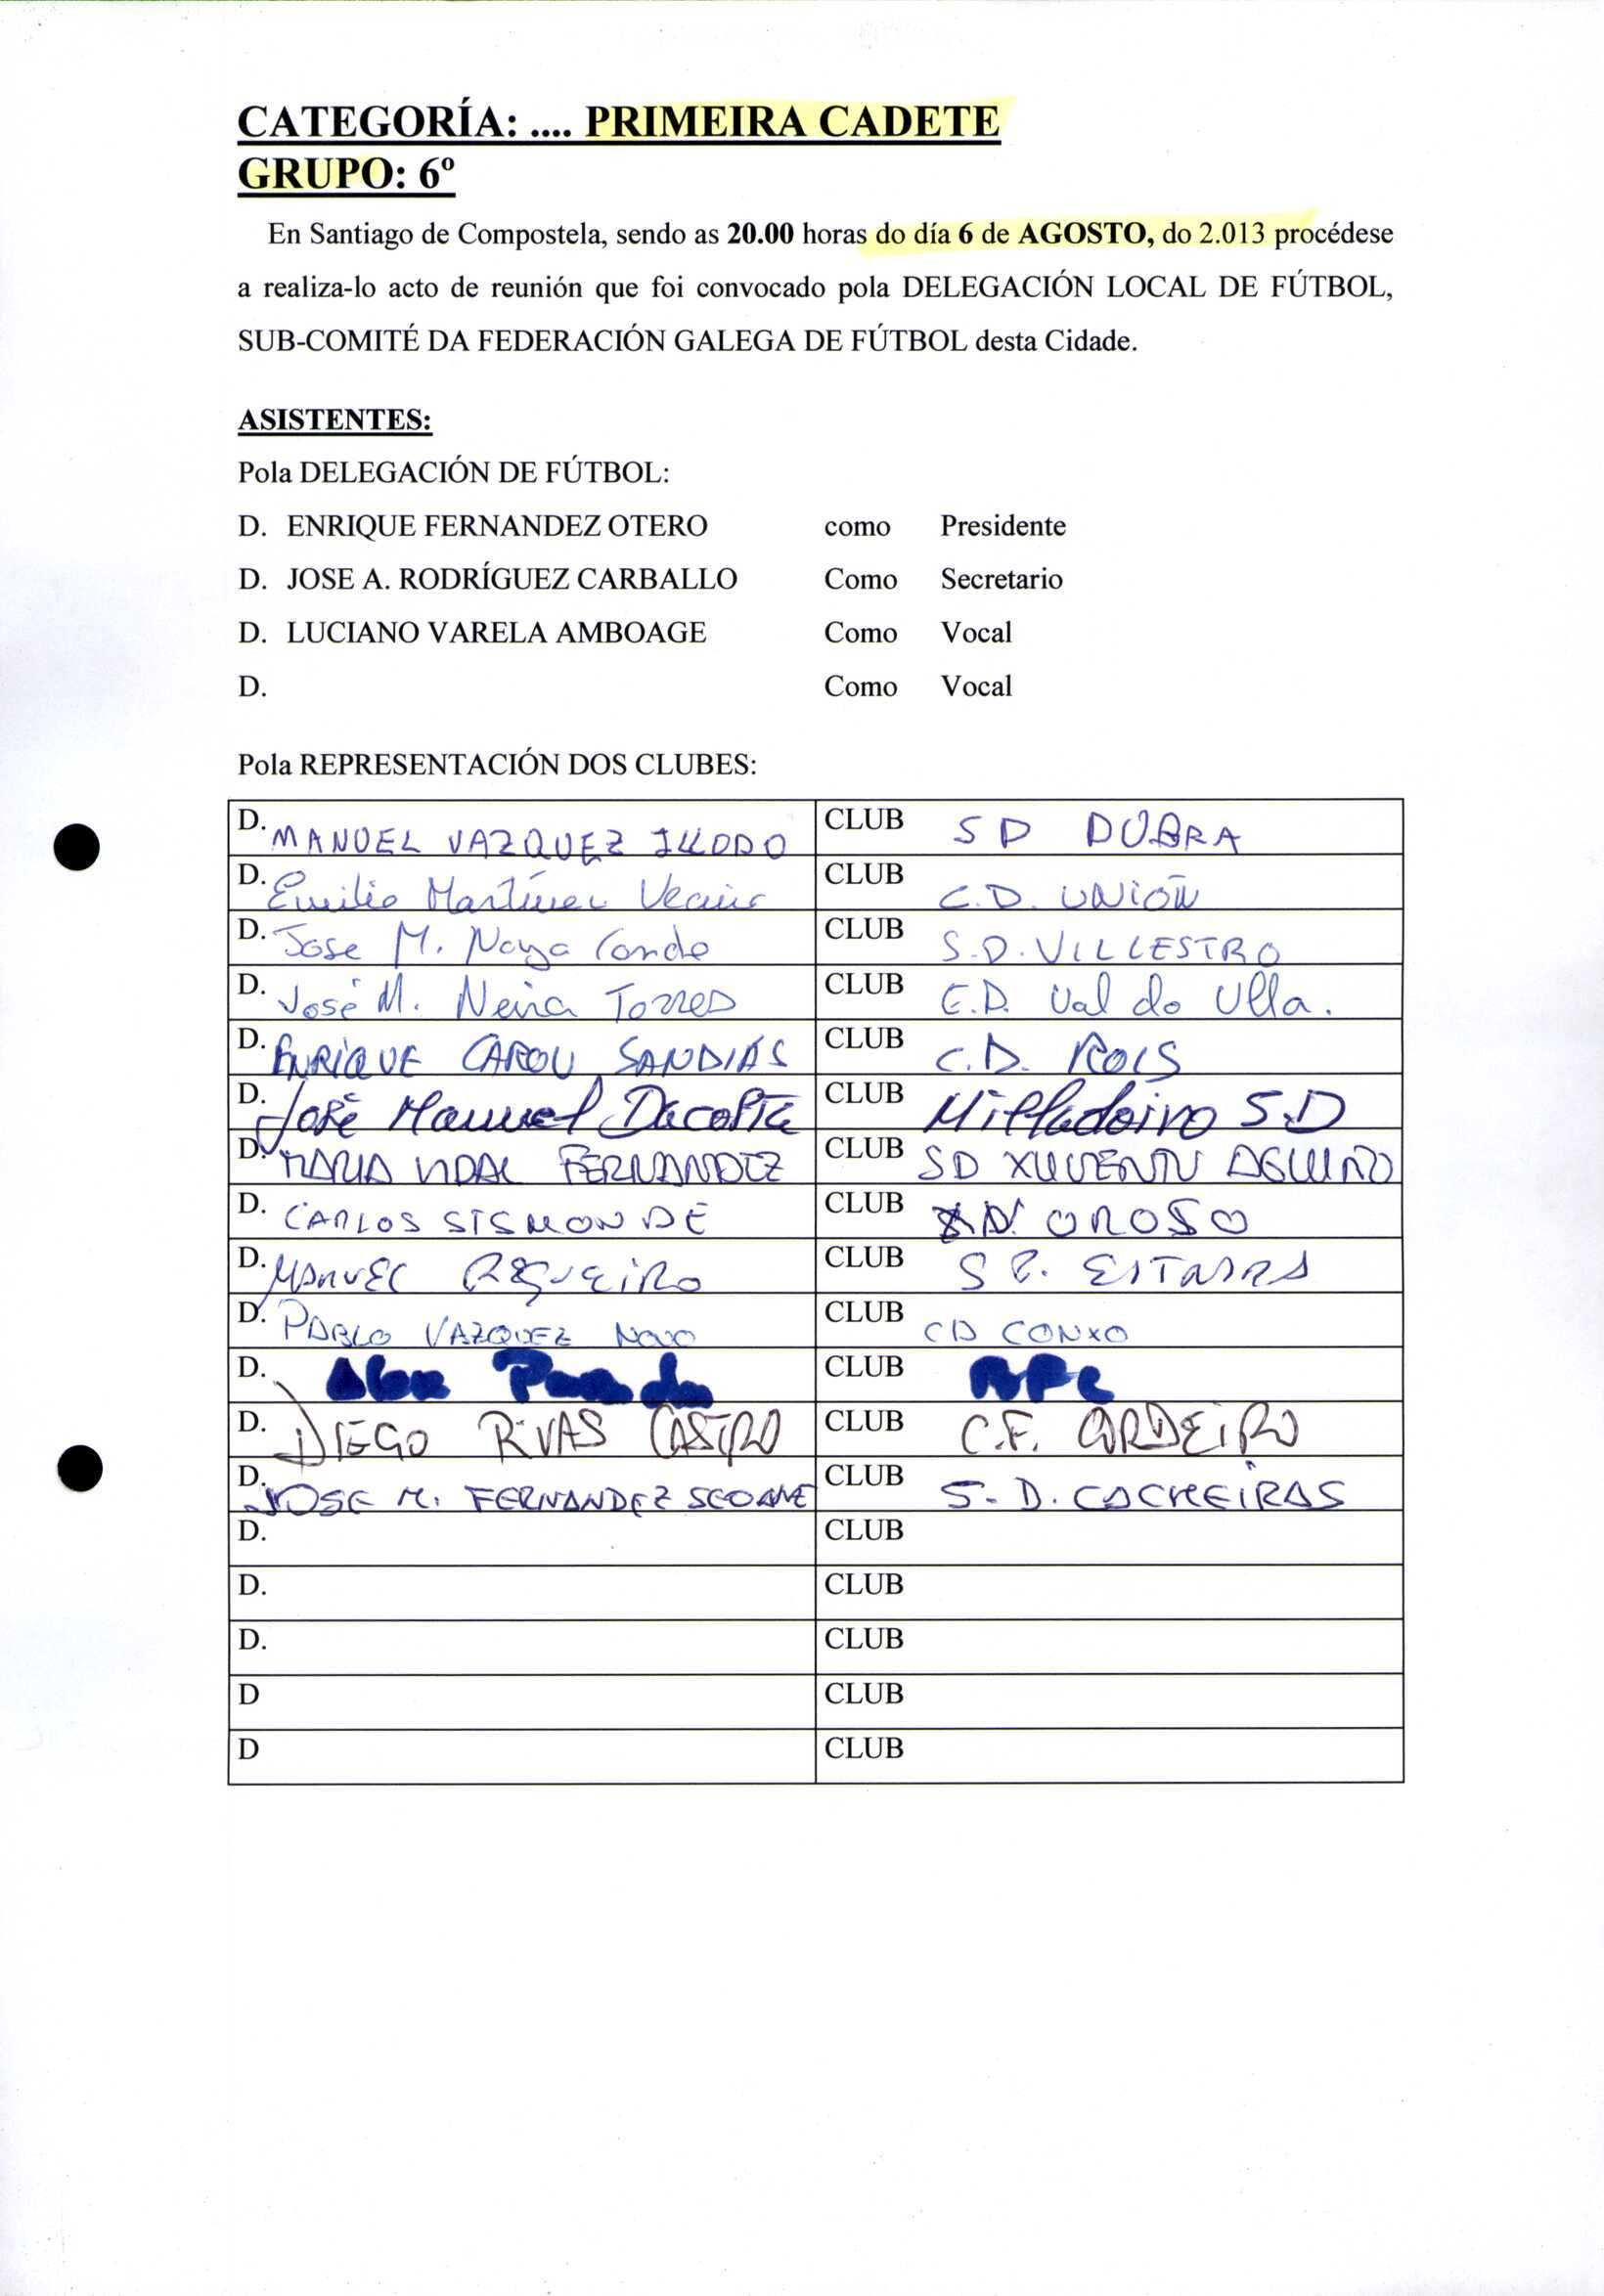 CATEGORÍA: .... PRIMEIRA CADETE
GRUPO: 6º
En Santiago de Compostela, sendo as 20.00 horas do día 6 de AGOSTO, do 2.013 procédese
a realiza-lo acto de reunión que foi convocado pola DELEGACIÓN LOCAL DE FÚTBOL,
SUB-COMITÉ DA FEDERACIÓN GALEGA DE FÚTBOL desta Cidade.
ASISTENTES:
Pola DELEGACIÓN DE FÚTBOL:
D. ENRIQUE FERNANDEZ OTERO como Presidente
D. JOSE A. RODRÍGUEZ CARBALLO Como Secretario
D. LUCIANO VARELA AMBOAGE Como Vocal
D. Como Vocal
Pola REPRESENTACIÓN DOS CLUBES:
D. MANUEL VAZQUEZ CLUB SD DUBRA
D. Emilio Martínez CLUB C.D. UNIÓN
D. Jose M. Noya Conde CLUB S.D. VILLESTRO
D. José M. Neira Torres CLUB E.D. Val do Ulla.
D. ENRIQUE CAROU SANDIÁS CLUB C.D. ROIS
D. José Manuel Dacosta CLUB Milladoiro S.D
D. MARIA VIDAL FERNANDEZ CLUB SD XUVENTU AGUIÑO
D. CARLOS SISMONDE CLUB OROSO
D. MANUEL REGUEIRO CLUB
D. PABLO VAZQUEZ NOVO CLUB CD CONXO
D. CLUB
D. DIEGO RIVAS CASTRO CLUB C.F. CORDEIRO
D. JOSE M. FERNANDEZ SEOANE CLUB S.D. CACHEIRAS
D. CLUB
D. CLUB
D. CLUB
D CLUB
D CLUB